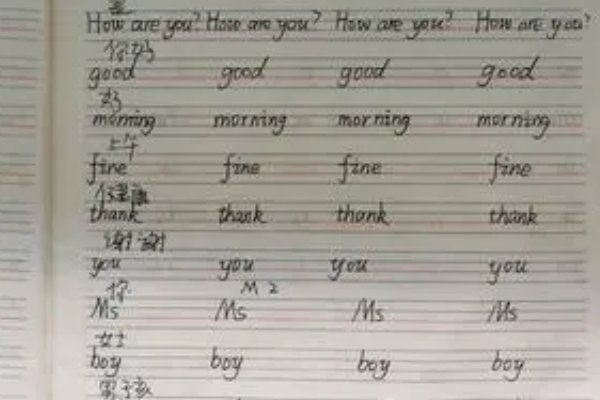 How are you? How are you? How are you? How are you?
你好
good good good good
好
morning morning morning morning
上午
fine fine fine fine
健康
thank thank thank thank
谢谢
you you you you
你 M 2
Ms Ms Ms Ms
女士
boy boy boy boy
男孩